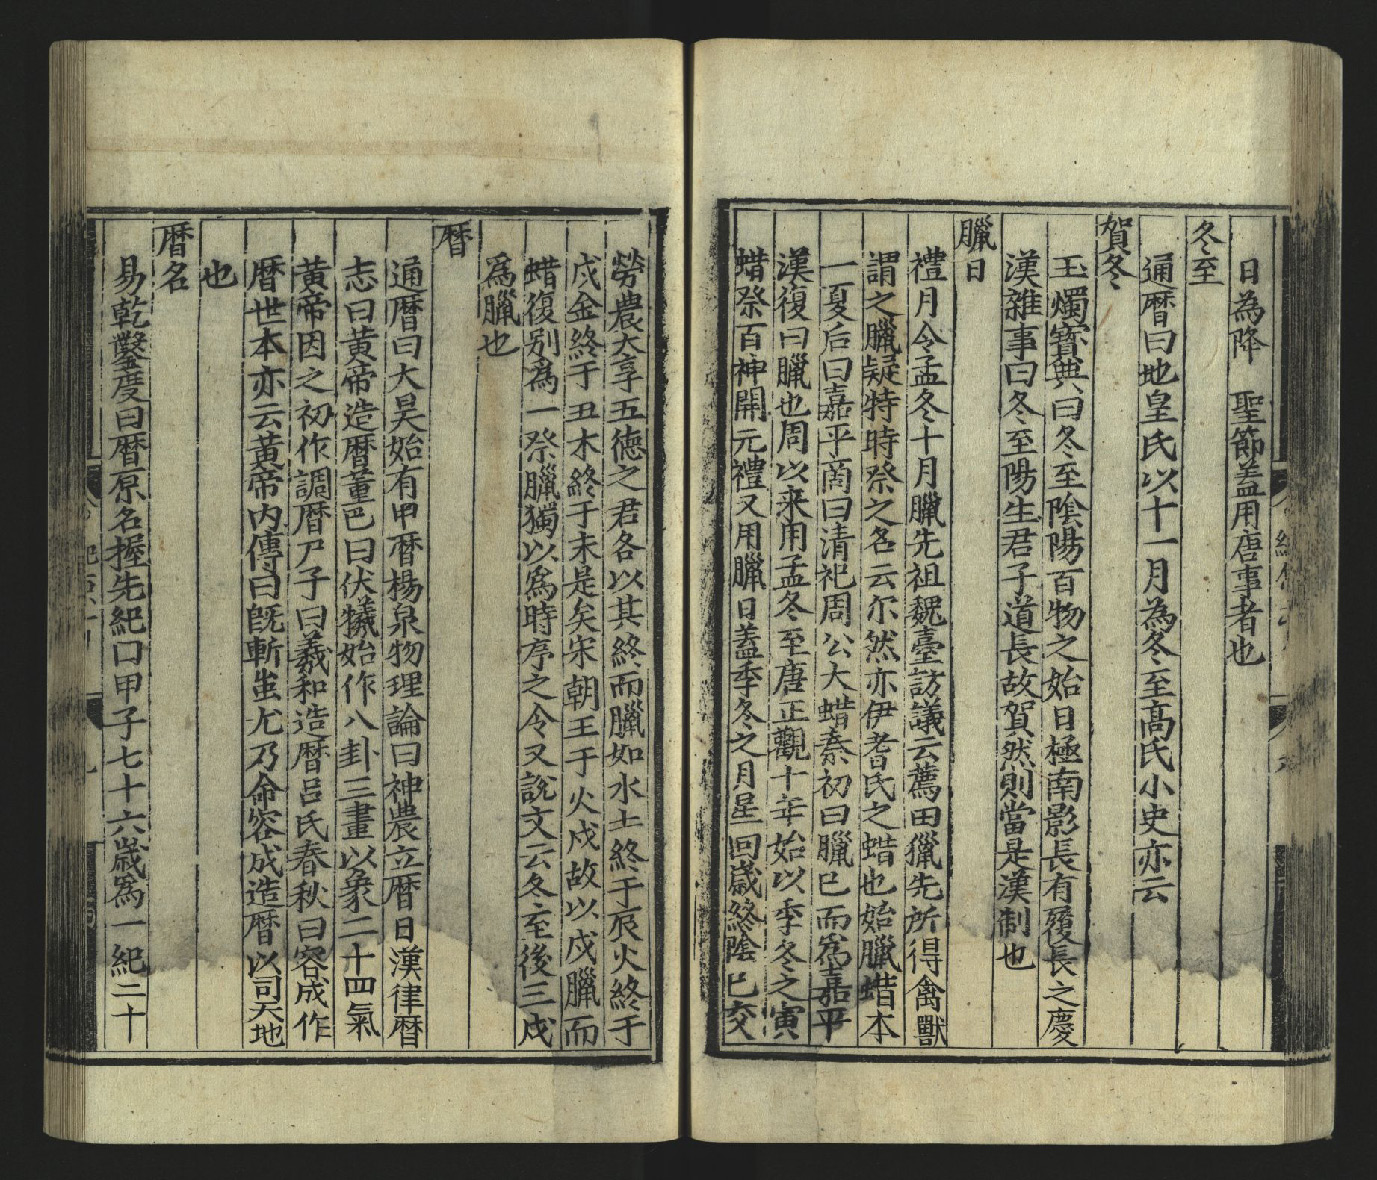 日為降　聖節蓋用唐事者也
冬至
通曆曰地皇氏以十一月為冬至高氏小史亦云
賀冬
玉燭寶典曰冬至陰陽百物之始日極南影長有履長之慶
漢雜事曰冬至陽生君子道長故賀然則當是漢制也
臘日
禮月令孟冬十月臘先祖魏臺訪議云薦田獵先所得禽獸
謂之臘疑特時祭之名云尔然亦伊耆氏之蜡也始臘蜡本
一夏后曰嘉平啇曰清祀周公大蜡秦初曰臘已而爲嘉平
漢復曰臘也周以来用孟冬至唐正觀十年始以季冬之寅
蜡祭百神開元禮又用臘日蓋季冬之月星回歲終陰已交
勞農大享五德之君各以其終而臘如水土終于辰火終于
戌金終于丑木終于未是矣宋朝王于火戌故以戌臘而
蜡復別爲一祭臘獨以爲時序之令又說文云冬至後三戌
爲臘也
曆
通曆曰大昊始有甲曆楊泉物理論曰神農立曆日漢律曆
志曰黃帝造曆董巴曰伏犧始作八卦三畫以象二十四氣
黃帝因之初作調曆尸子曰羲和造曆吕氏春秋曰容成作
曆世本亦云黃帝内傳曰旣斬蚩尤乃命容成造曆以司天地
也
曆名
易乾鑿度曰曆原名握先紀口甲子七十六歲爲一紀二十